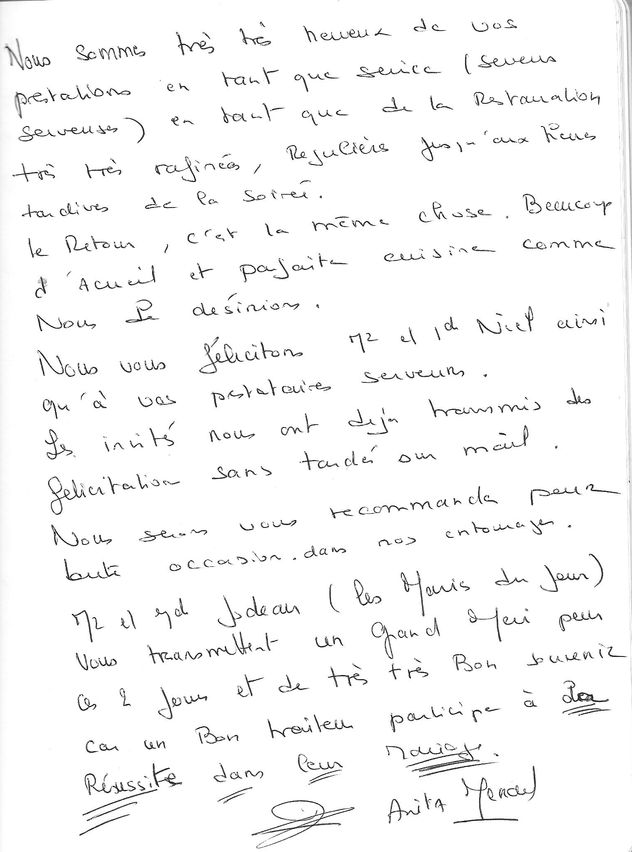 Nous sommes très très heureux de vos
prestations en tant que service (serveurs
serveuses) en tant que de la Restauration
très très rafinées, Régulières jusqu'aux heures
tardives de la soirée.
le Retour, c'est la même chose. Beaucoup
d'Acueil et parfaite cuisine comme
Nous le désirions.
Nous vous félicitons Mr et Md Niel ainsi
qu'à vos prestataires serveurs.
Les invités nous ont deja transmis des
felicitation sans tardés sur mail.
Nous serons vous recommander pour
toute occasion. dans nos entourages.
Mr et Md Jodeau (les Maris du Jour)
Vous transmettent un Grand Merci pour
ces 2 Jours et de très très Bon souvenir
car un Bon traiteur participe à La
Réussite dans leur Mariage.
Anita